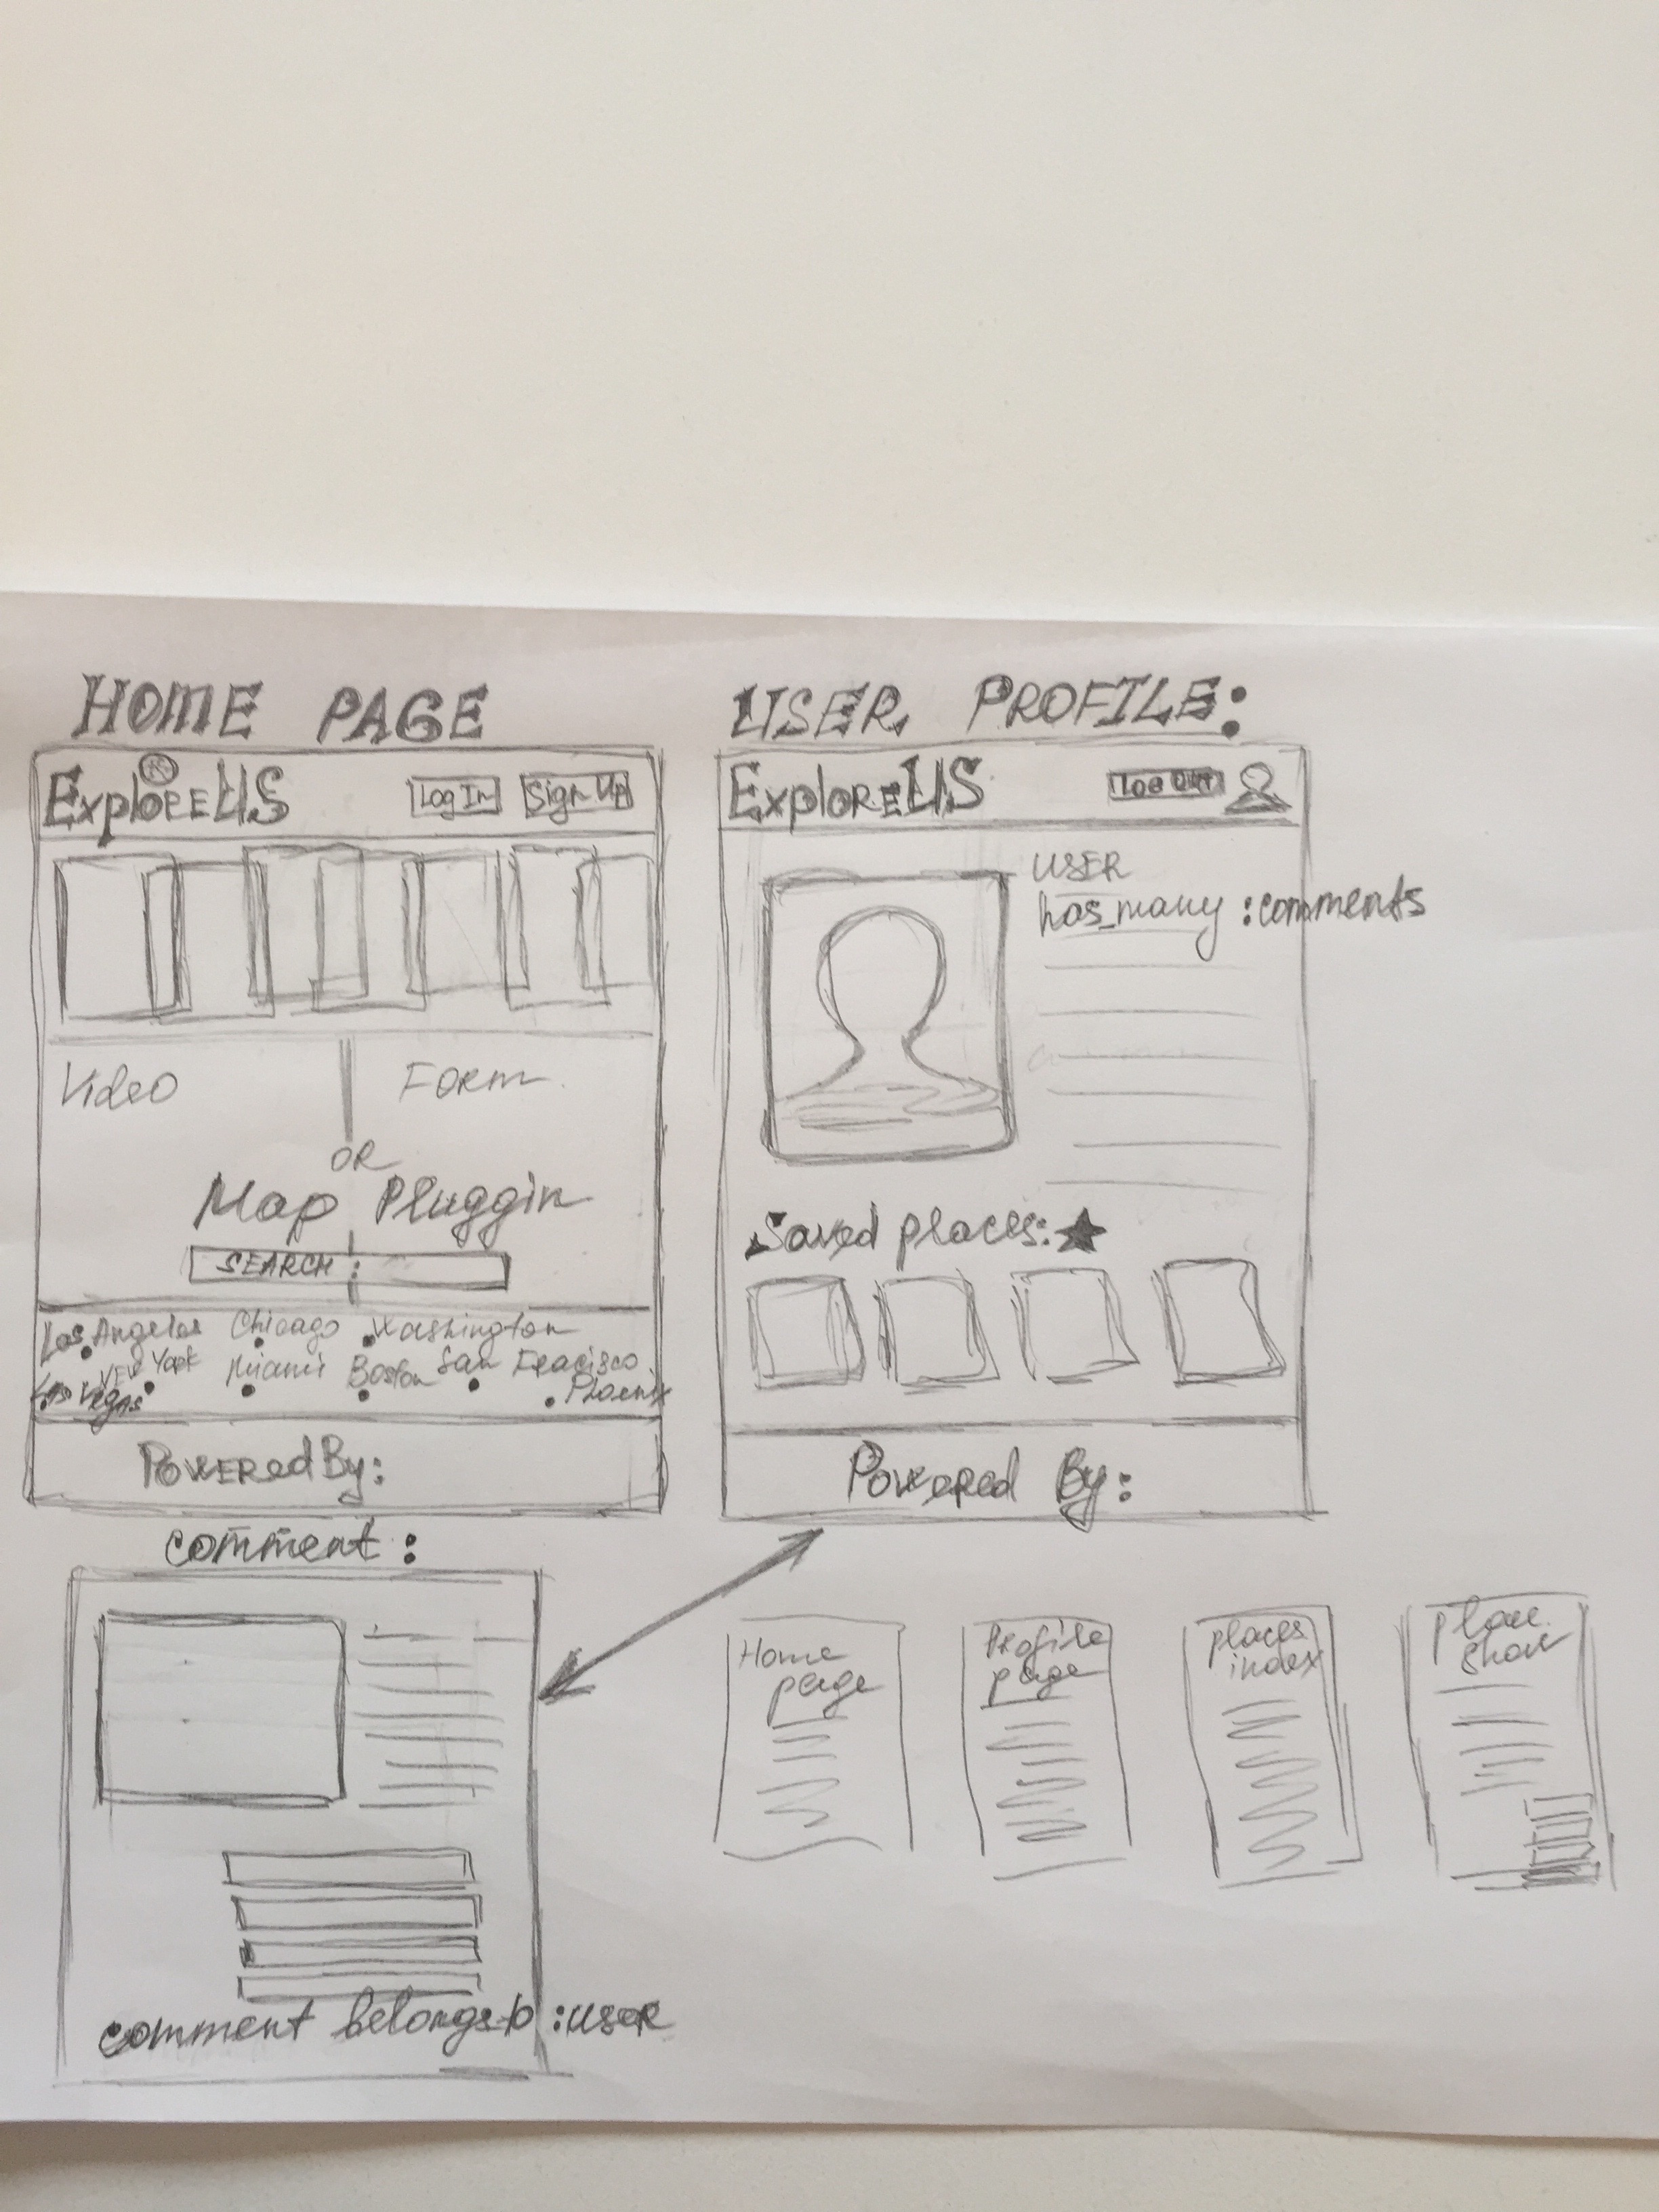 HOME PAGE
ExploreUS ®
Log In
Sign Up
Video
Form
OR
Map Pluggin
SEARCH :
Los Angeles
Chicago
Washington
New York
Miami
Boston
San Fracisco
Las Vegas
Phoenix
Powered By:
USER PROFILE:
ExploreUS
Log Out
USER
has_many :comments
Saved places: ★
Powered By:
comment :
comment belongs_to :user
Home
page
Profile
page
places
index
place
show